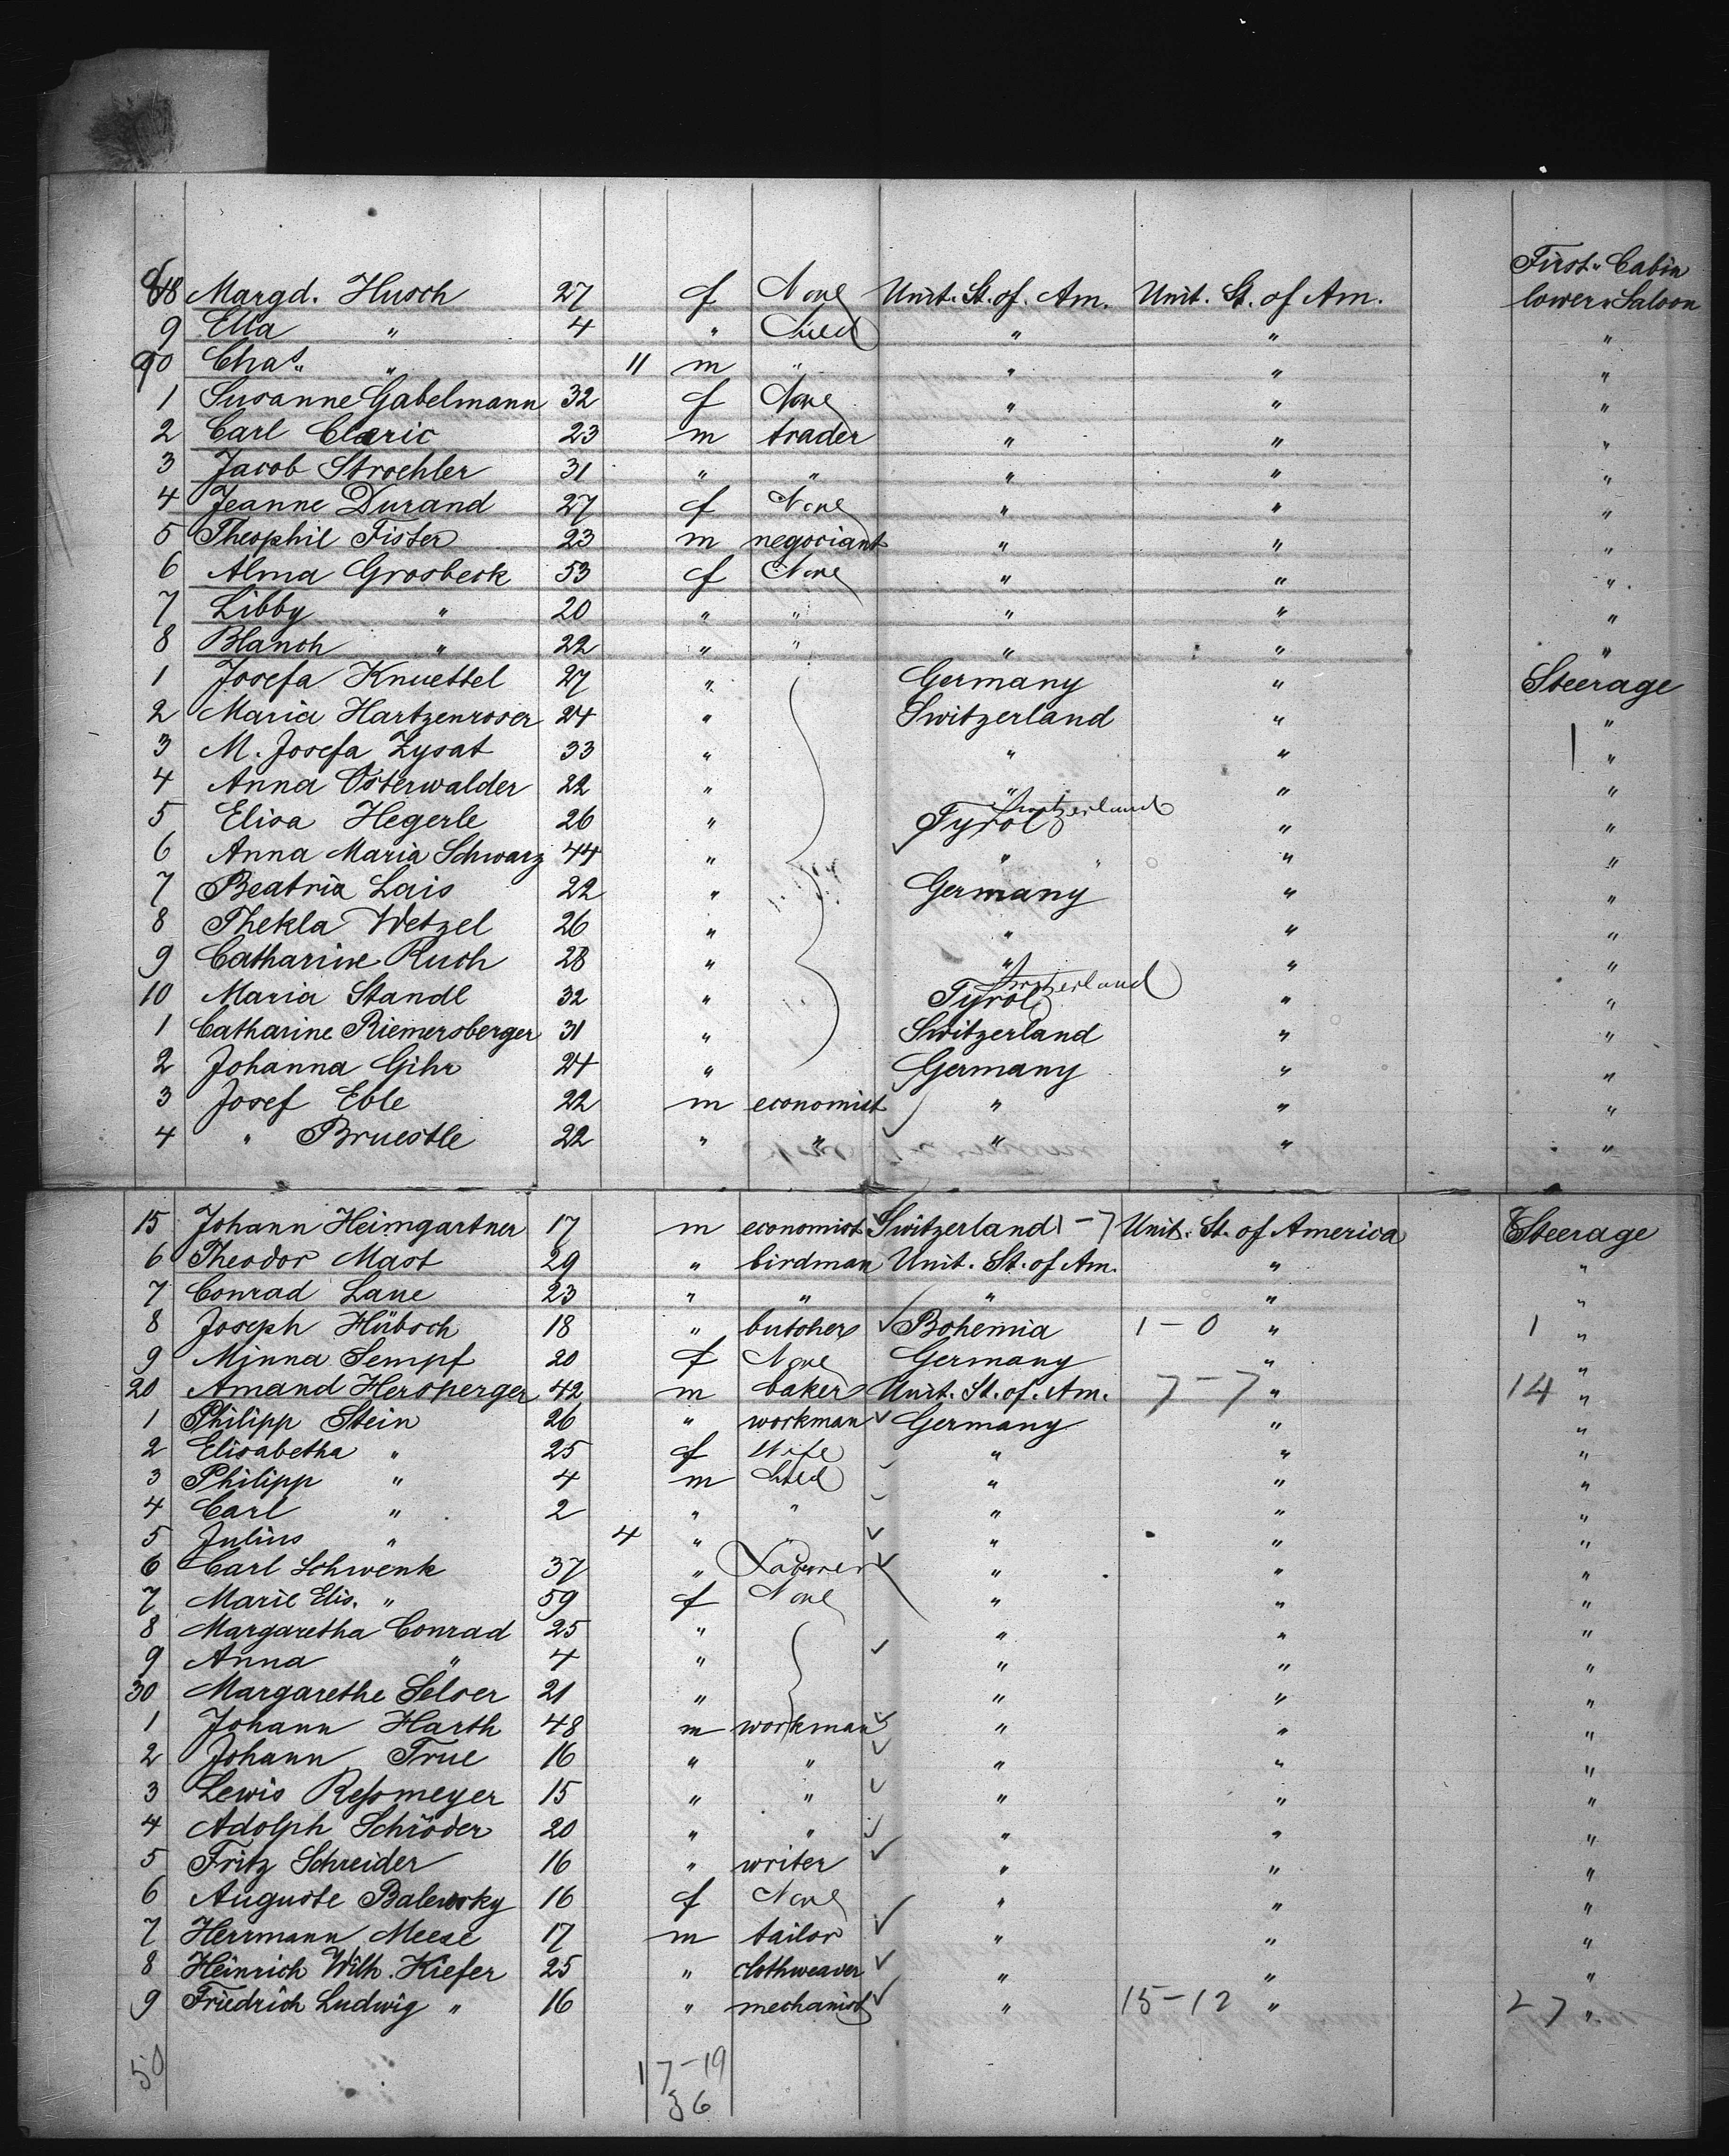 First Cabin
88 Margd. Husch 27 f None Unit. St. of. Am. Unit. St. of Am. lower Saloon
9 Ella " 4 " Child " " "
90 Chas. " 11 m " " " "
1 Susanne Gabelmann 32 f None " " "
2 Carl Claeric 23 m trader " " "
3 Jacob Stroehler 31 " " " " "
4 Jeanne Durand 27 f None " " "
5 Theophil Fister 23 m negociant " " "
6 Alma Grosbeck 53 f None " " "
7 Libby " 20 " " " " "
8 Blanch " 22 " " " " "
1 Josefa Knuettel 27 " Germany " Steerage
2 Maria Hartzenroser 24 " Switzerland " "
3 M. Josefa Zysat 33 " " " "
4 Anna Osterwalder 22 " " " "
5 Elisa Hegerle 26 " Tyrol Switzerland " "
6 Anna Maria Schwarz 44 " " " "
7 Beatrix Lais 22 " Germany " "
8 Thekla Wetzel 26 " " " "
9 Catharine Ruch 28 " " " "
10 Maria Standl 32 " Tyrol Switzerland " "
1 Catharine Riemersberger 31 " Switzerland " "
2 Johanna Gihr 24 " Germany " "
3 Josef Eble 22 m economist " " "
4 " Bruestle 22 " " " " "
15 Johann Heimgartner 17 m economist Switzerland 1-7 Unit. St. of America Steerage
6 Theodor Mast 29 " birdman Unit. St. of Am. " "
7 Conrad Laue 23 " " " " "
8 Joseph Hübsch 18 " butcher Bohemia 1-0 " 1 "
9 Minna Sempf 20 f None Germany " "
20 Amand Hersperger 42 m baker Unit. St. of. Am. 7-7 " 14 "
1 Philipp Stein 26 " workman Germany " "
2 Elisabetha " 25 f Wife " " "
3 Philipp " 4 m Child " " "
4 Carl " 2 " " " " "
5 Julius " 4 " " " " "
6 Carl Schwenk 37 " Laborer " " "
7 Marie Elis. " 59 f None " " "
8 Margaretha Conrad 25 " " " "
9 Anna " 4 " " " "
30 Margarethe Selser 21 " " " "
1 Johann Harth 48 m workman " " "
2 Johann True 16 " " " " "
3 Lewis Ressmeyer 15 " " " " "
4 Adolph Schröder 20 " " " " "
5 Fritz Schreider 16 " writer " " "
6 Auguste Balewsky 16 f None " " "
7 Herrmann Meese 17 m tailor " " "
8 Heinrich Wilh. Kiefer 25 " clothweaver " " "
9 Friedrich Ludwig " 16 " mechanist " 15-12 " 27 "
50 17-19
36